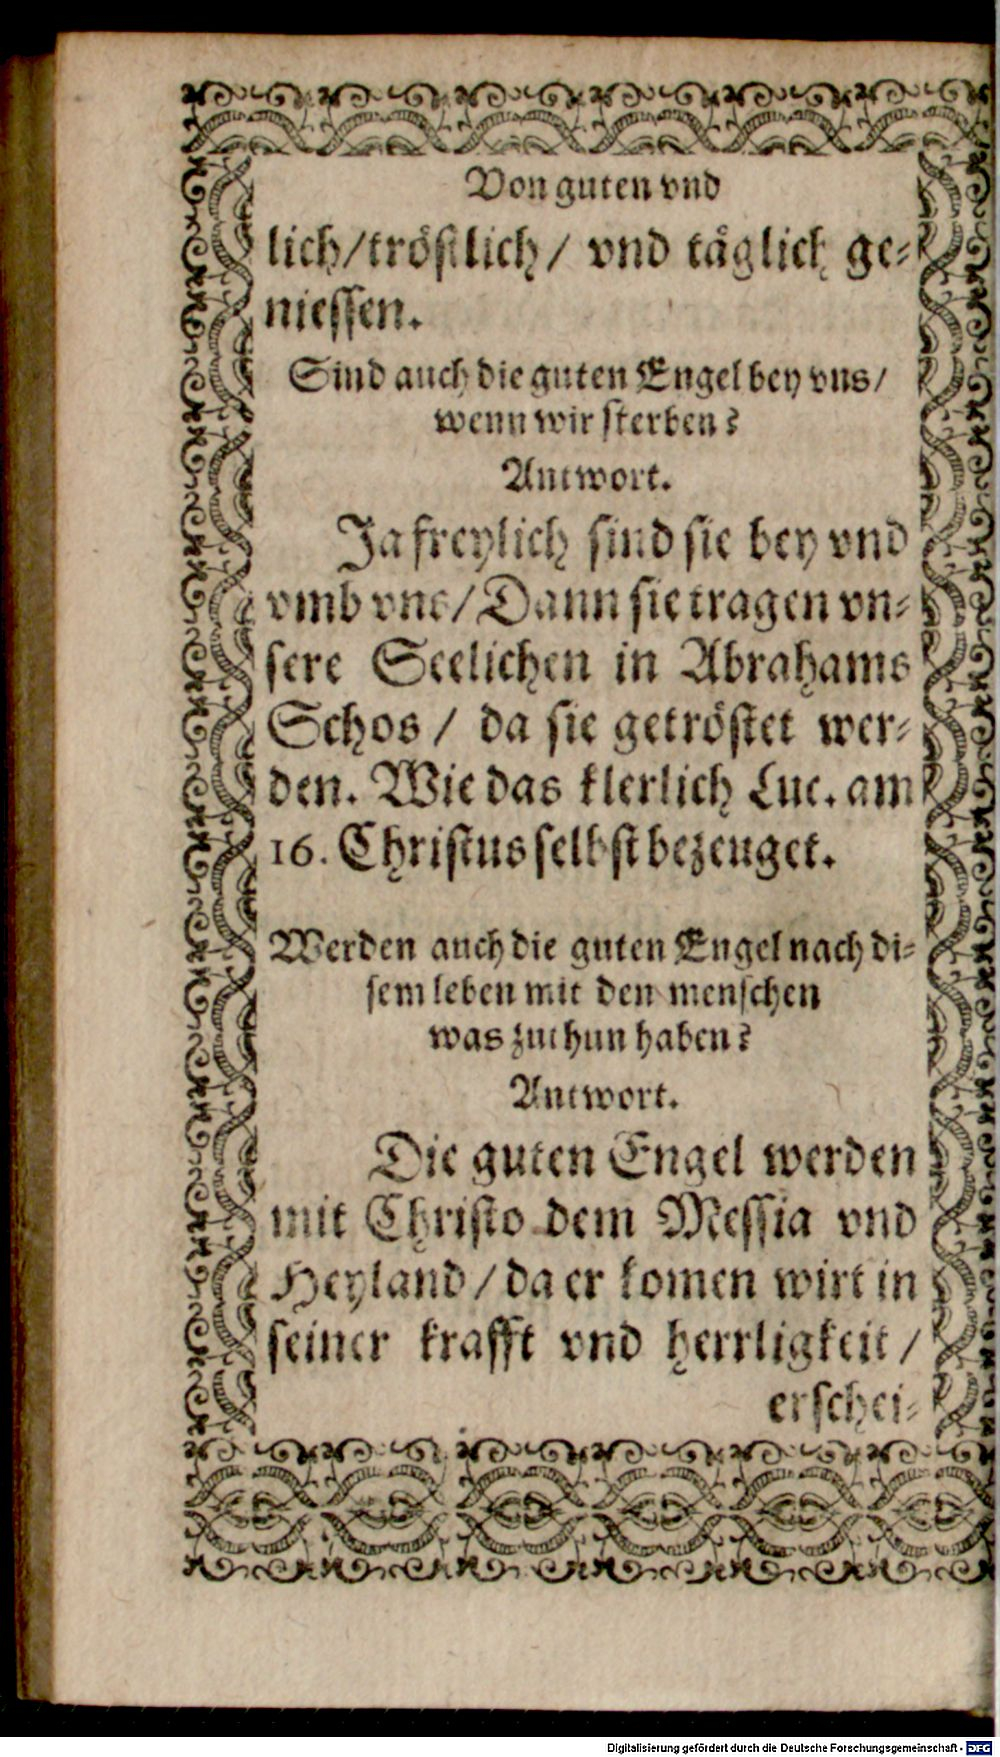 Von guten vnd
lich/tröstlich/ vnd täglich ge-
niessen.
Sind auch die guten Engel bey vns/
wenn wir sterben?
Antwort.
Ja freylich sind sie bey vnd
vmb vns/Dann sie tragen vn-
sere Seelichen in Abrahams
Schos/ da sie getröstet wer-
den. Wie das klerlich Luc. am
16. Christus selbst bezeuget.
Werden auch die guten Engel nach di-
sem leben mit den menschen
was zuthun haben?
Antwort.
Die guten Engel werden
mit Christo dem Messia vnd
Heyland/da er komen wirt in
seiner krafft vnd herrligkeit/
erschei-
Digitalisierung gefördert durch die Deutsche Forschungsgemeinschaft - DFG